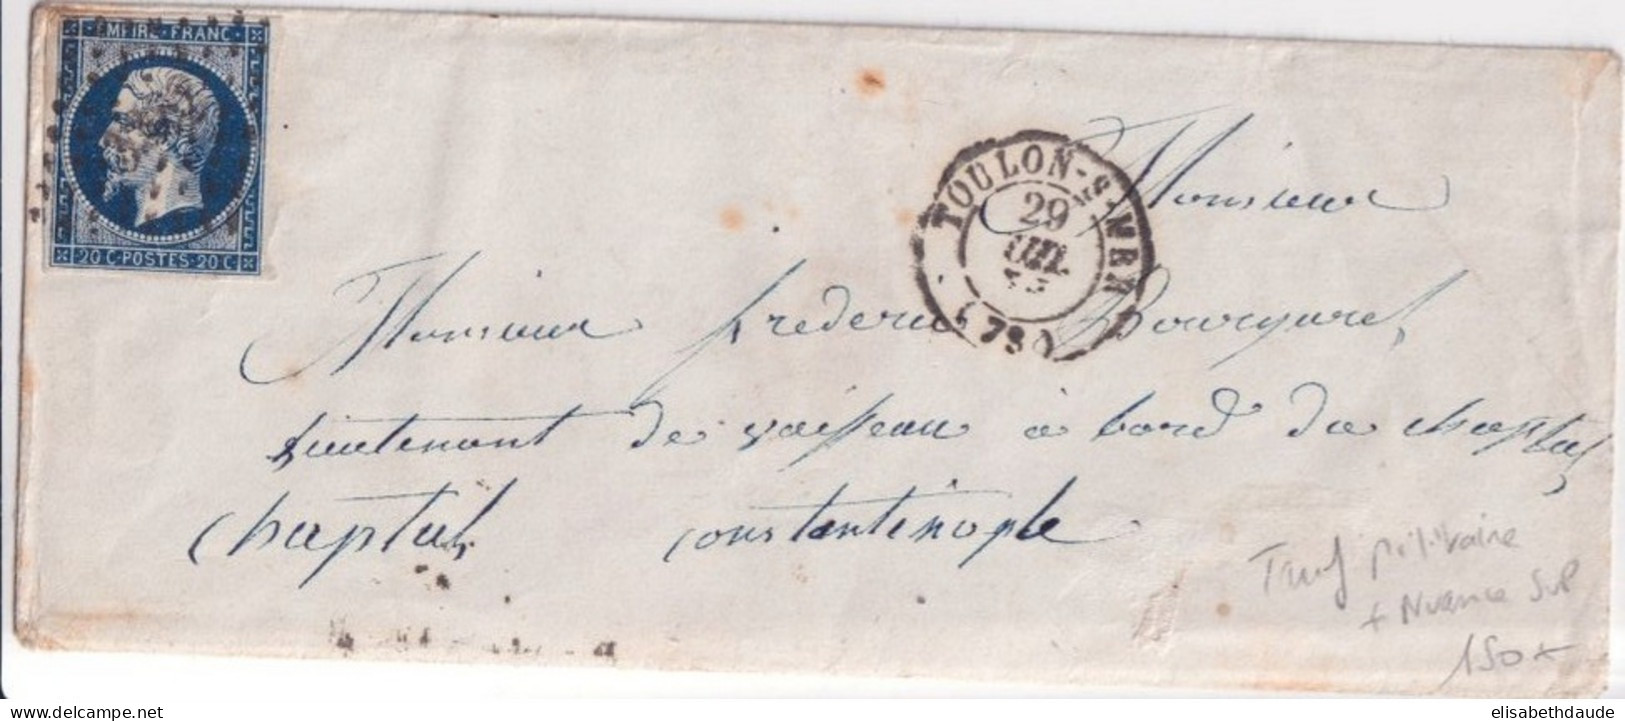 EMPIRE·FRANC·
20 C·POSTES·20 C
TOULON-S-MER
29
JUIL
(78)
Monsieur
Monsieur frederic Bourgarel
Lieutenant de vaisseau à bord du chaptal
Chaptal constantinople
Tarif militaire
+ Nuance SUP
150
delcampe.net
elisabethdaude